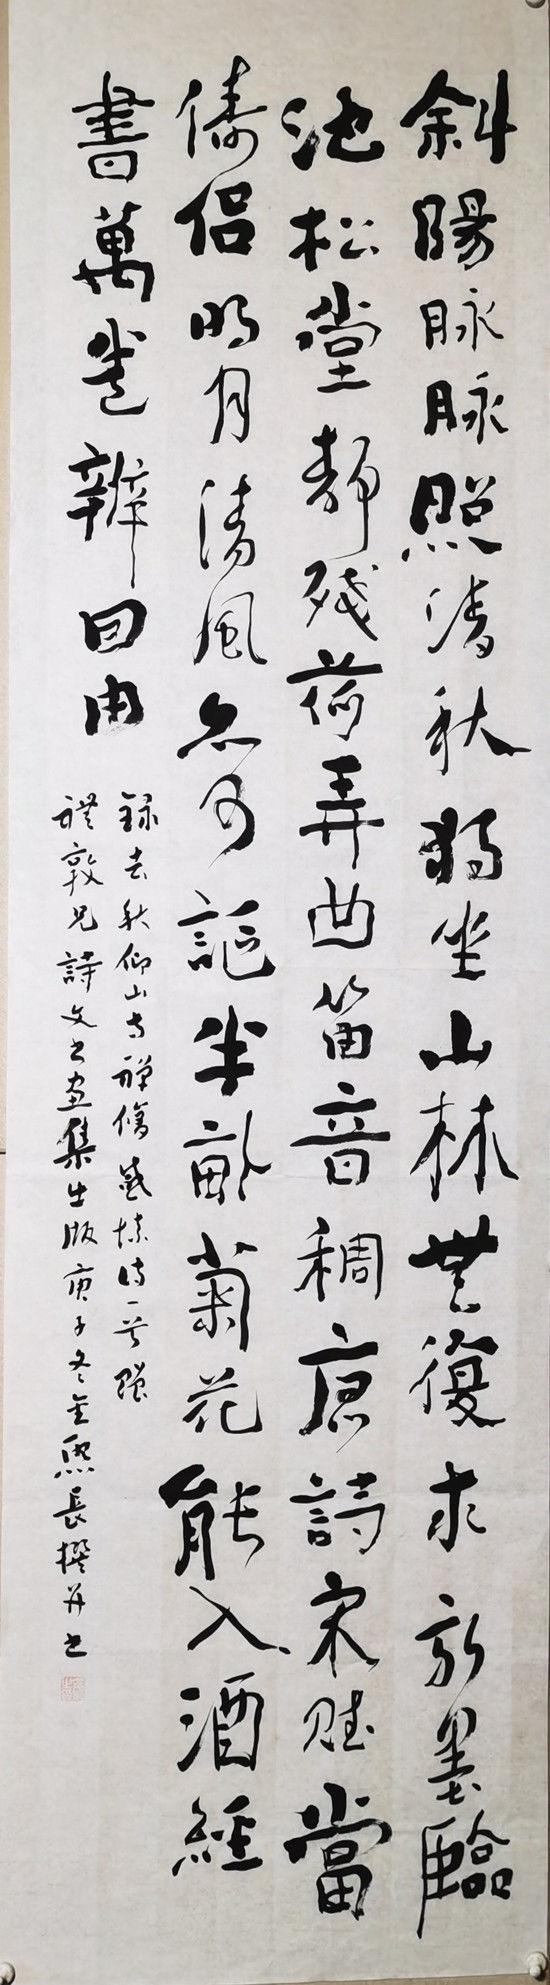 斜陽脉脉照清秋獨坐山林無復求墨臨
池松堂靜殘荷弄曲笛音稠唐詩宋賦當
儔侶明月清風亦可謳半畝菊花能入酒經
書萬卷辨囙由
錄去秋仰山寺禪修感懷詩一首
禮敦兄詩文書畫集出版庚子冬金熙長撰并書